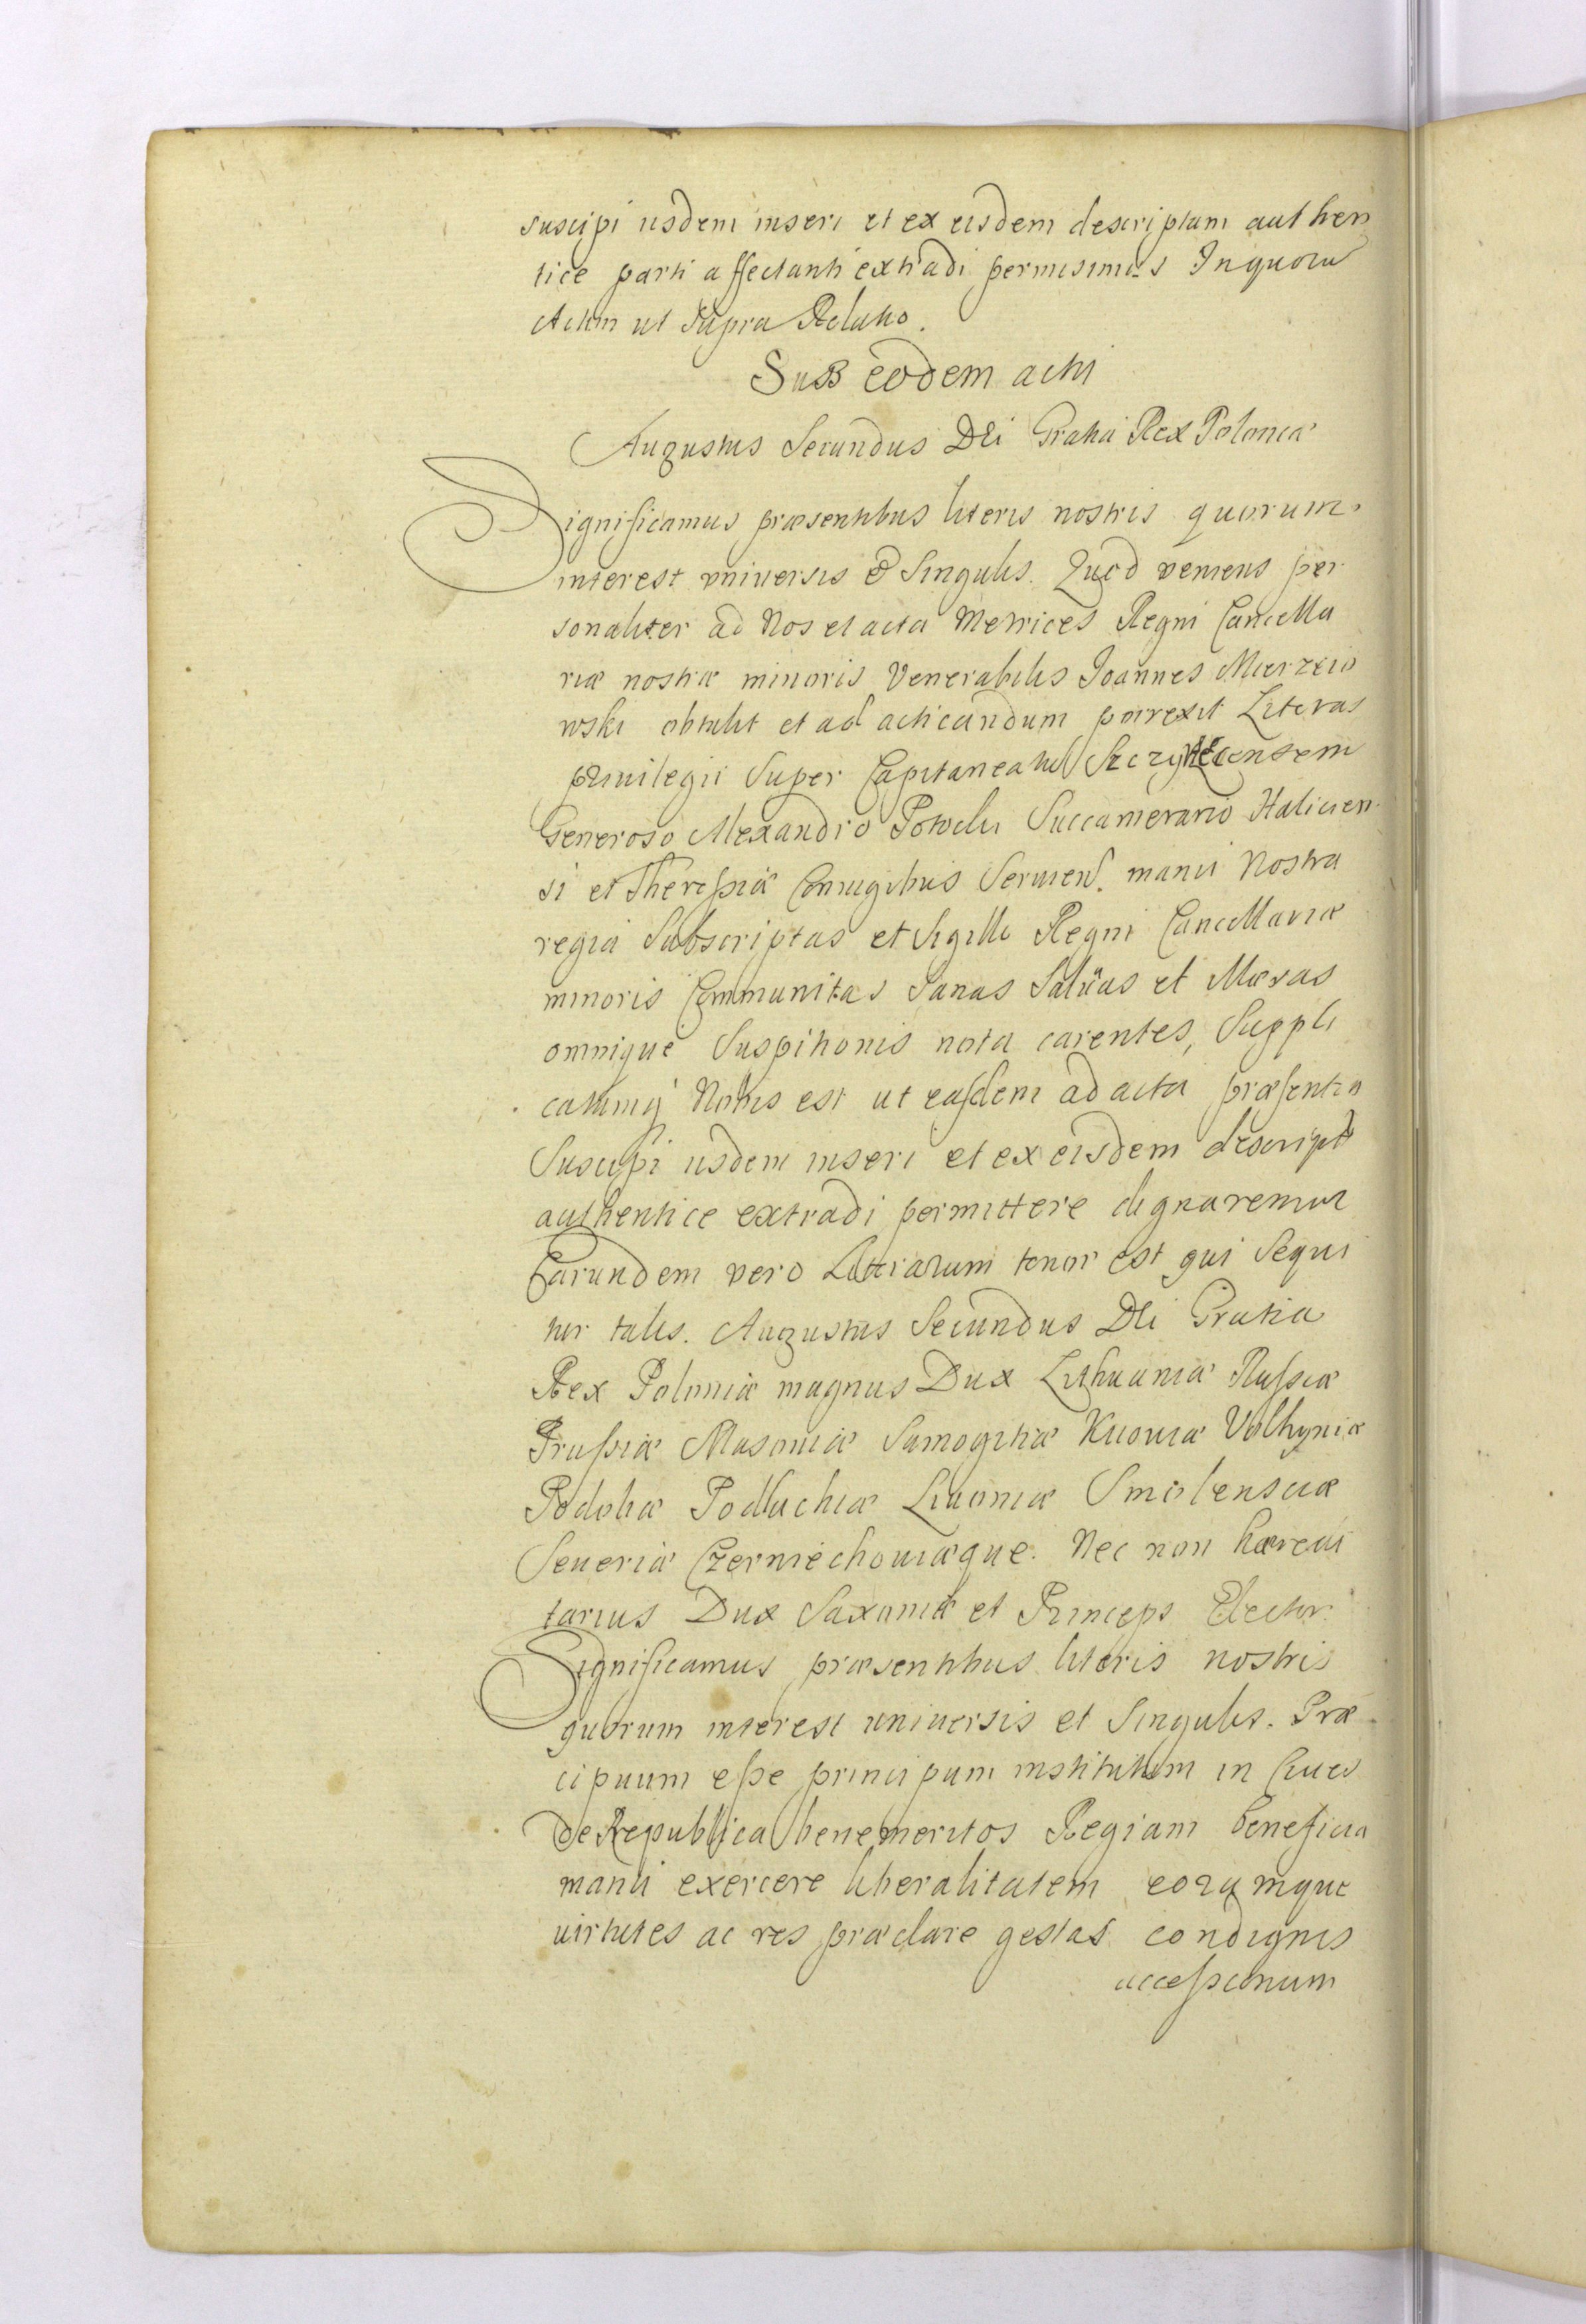 suscipi iisdem inseri et ex eisdem descriptum authen
tice parti affectanti extradi permisimus Inquoru
Actum ut Supra Relatio.
SuB eodem acti
Augustus Secundus DEi Gratia Rex Poloniæ
Significamus præsentibus literis nostris quorum
interest vniuersis & Singulis. Quod veniens per
sonaliter ad Nos et acta Metrices Regni Cancella
riæ nostræ minoris Venerabilis Joannes Mierzeio
wski obtulit et ad acticandum porrexit Literas
priuilegii Super Capitaneatu Szczyrecensem
Generoso Alexandro Potocki Succamerario Halicien
si et Theressiæ Coniugibus Seruien. manu Nostra
regia Subscriptas et Sigillo Regni Cancellariæ
minoris Communitas Sanas Saluas et Illæsas
omnique Suspitionis nota carentes, Suppli
catumq Nobis est ut easdem ad acta præsentia
Suscipi iisdem inseri et ex eisdem descript
authentice extradi permittere dignaremur
Earundem vero Litterarum tenor est qui Sequi
tur talis. Augustus Secundus DEi Gratia
Rex Poloniæ magnus Dux Lithuaniæ Russiæ
Prussiæ Masouiæ Samogitiæ Kiiouiæ Volhyniæ
Podoliæ Podlachiæ Liuoniæ Smolensciæ
Seueriæ Czerniechouiæque. Nec non hæredi
tarius Dux Saxoniæ et Princeps Elector.
Significamus præsentibus literis nostris
quorum interest uniuersis et Singulis. Præ
cipuum esse principum institutum in Ciues
de Republica benemeritos Regiam beneficia
manu exercere liberalitatem eorumque
uirtutes ac res præclare gestas condignis
accessionum